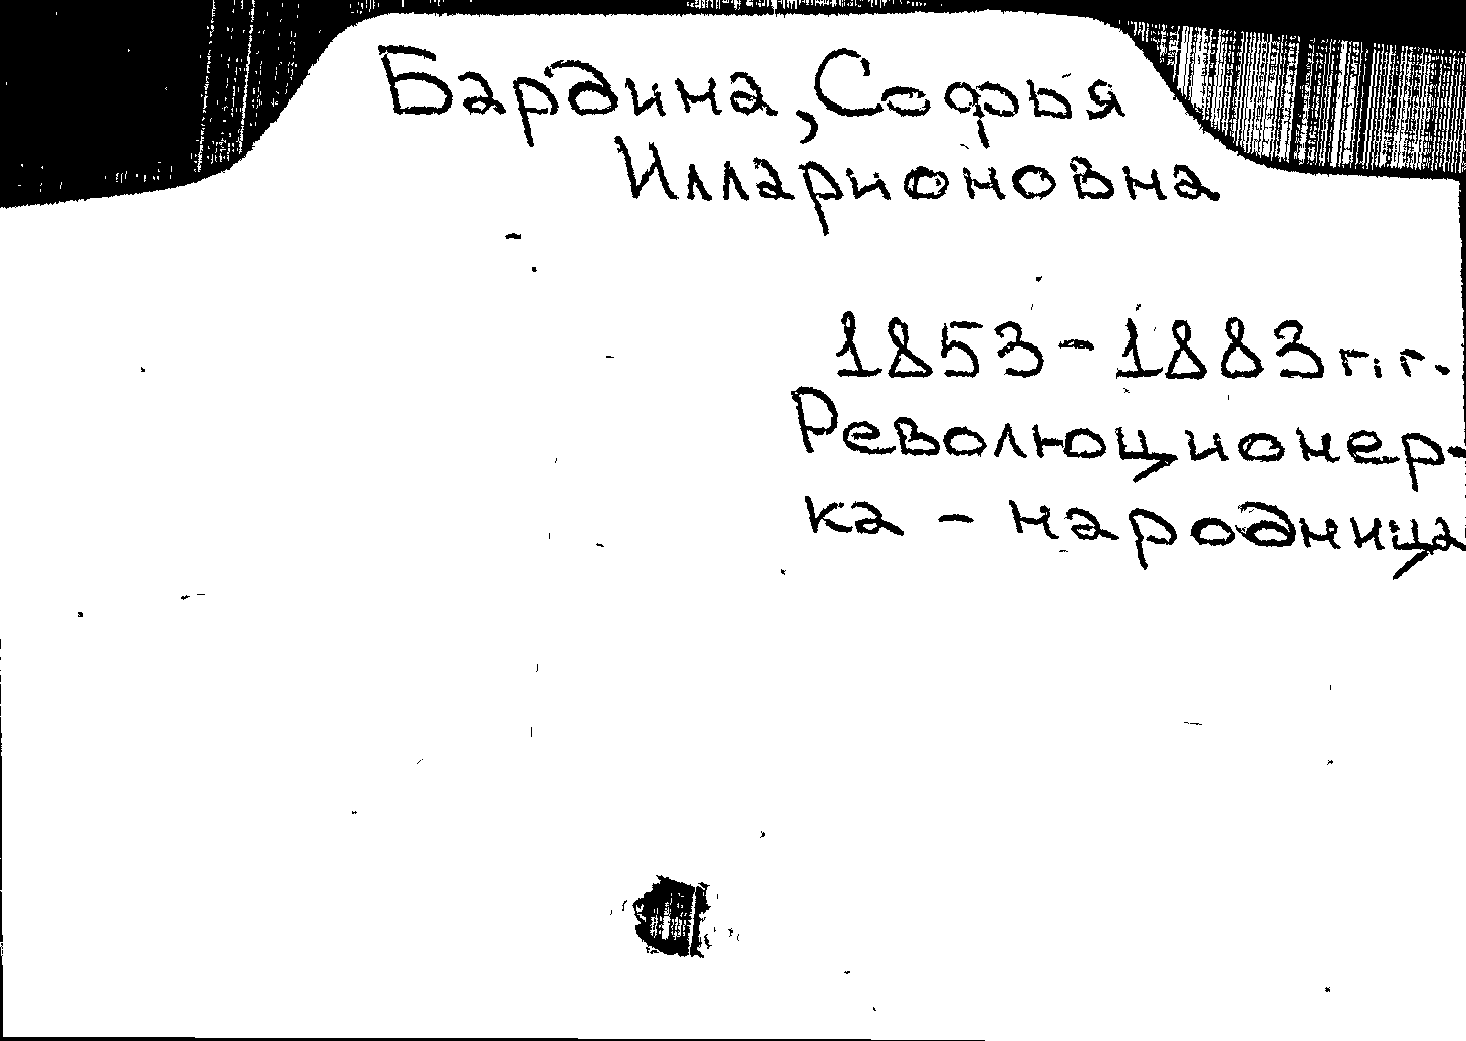 Бардина, Софья
Илларионовна
1853-1883 г.г.
Революционер-
ка - народница